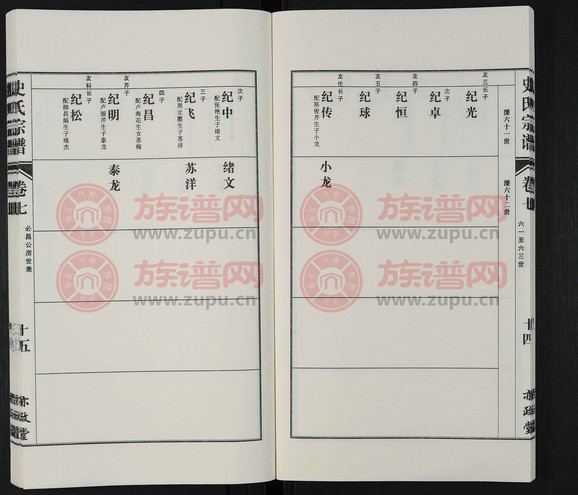 史氏宗谱
卷七
六一至六三世
十四
亦政堂
溧六十一世
溧六十二世
友三长子
纪光
次子
纪卓
友四子
纪恒
友五子
纪球
友伦长子
纪传
配陈俊芹生子小龙
小龙
次子
纪中
配张艳生子绪文
绪文
三子
纪飞
配周立霞生子苏洋
苏洋
四子
纪昌
配卢海花生女苏梅
友芹子
纪明
配卢丽芹生子泰龙
泰龙
友科长子
纪松
配柳昌娟生子绪杰
史氏宗谱
卷七
必昌公房世表
十五
亦政堂
族谱网
www.zupu.cn
族谱网
www.zupu.cn
族谱网
www.zupu.cn
族谱网
www.zupu.cn